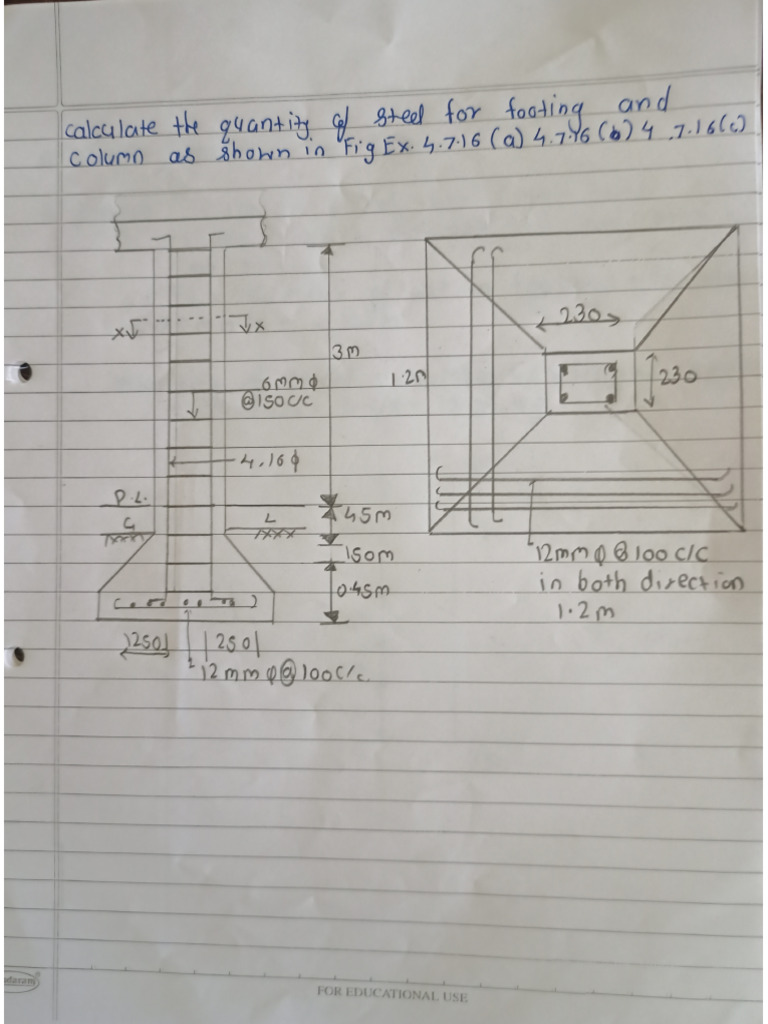 calculate the quantity of steel for footing and
column as shown in Fig Ex. 4.7.16 (a) 4.7.16 (b) 4.7.16(c)
230
x
x
3m
1.2m
230
6mm φ
@150 c/c
4.16 φ
P.L.
45m
G
L
150m
12mm φ @ 100 c/c
in both direction
1.2 m
0.45m
250
250
12 mm φ @ 100 c/c.
FOR EDUCATIONAL USE